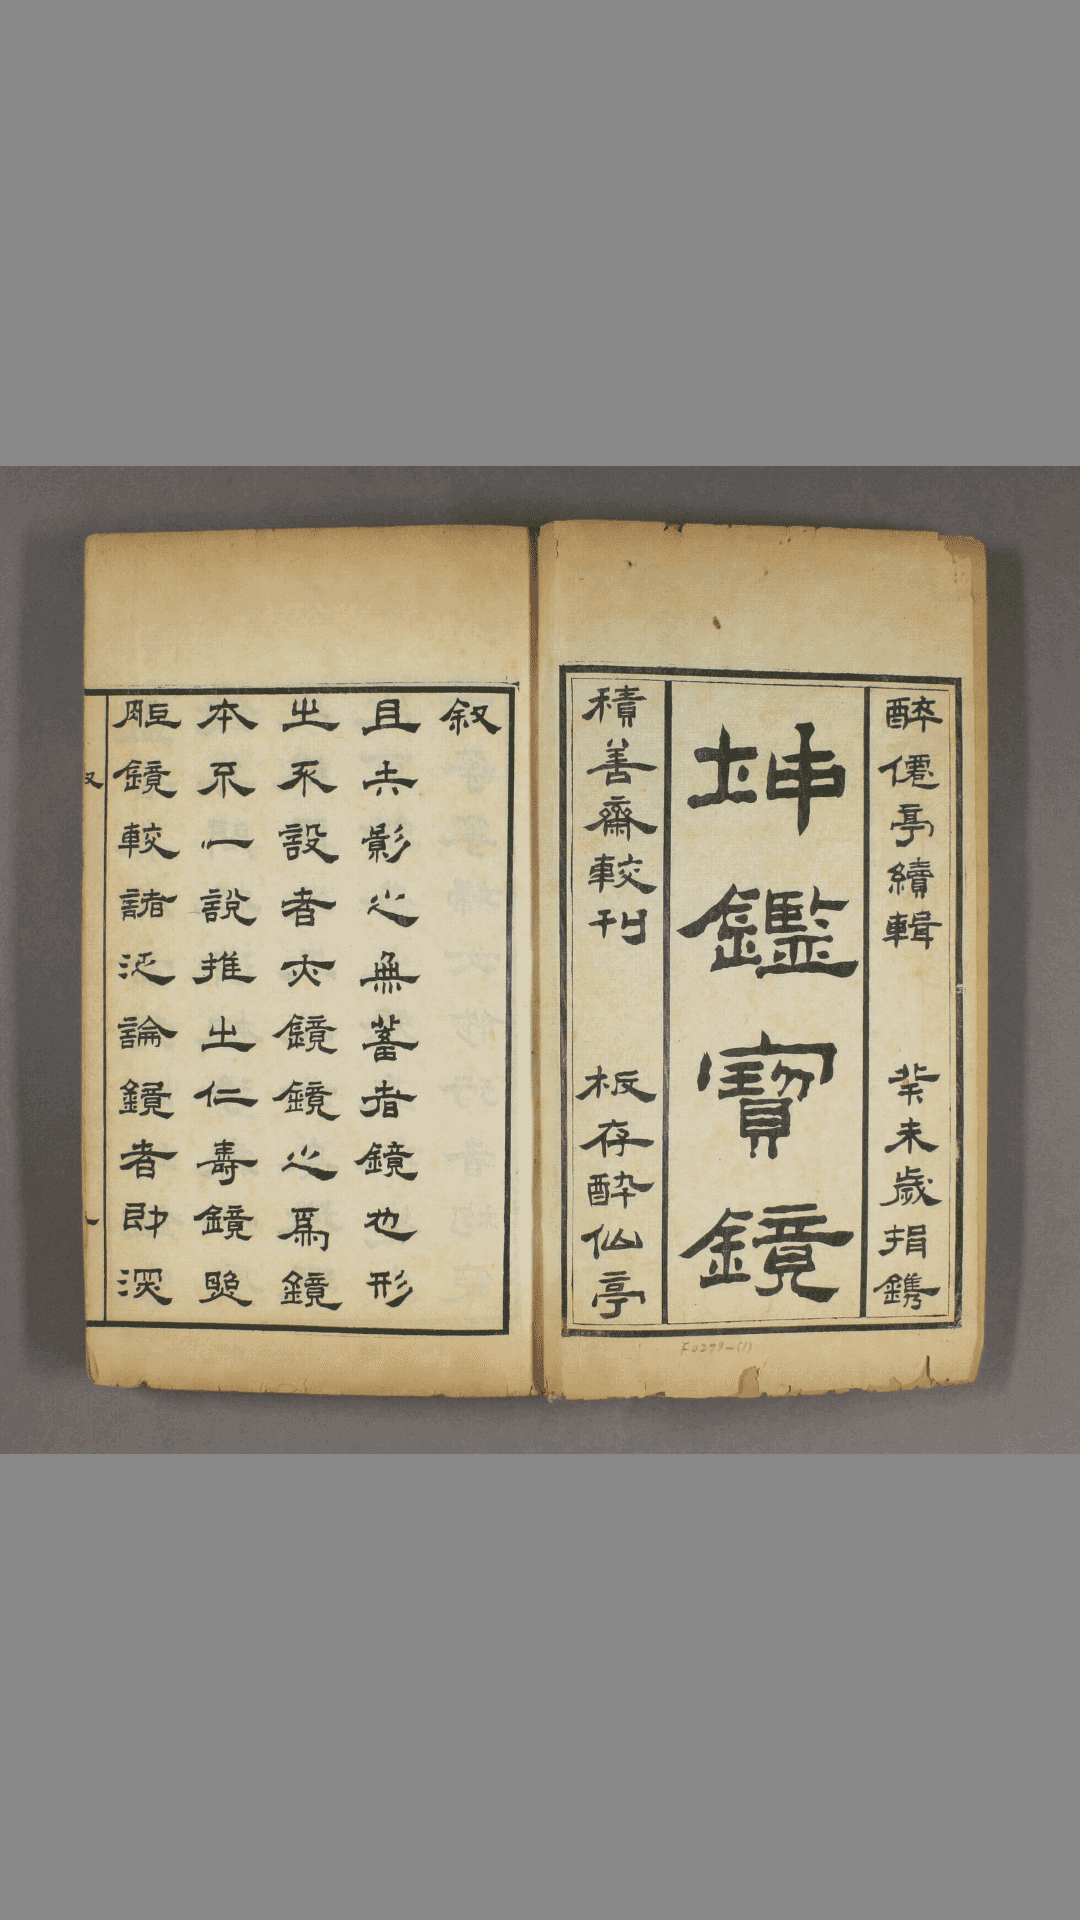 醉僊亭續輯 癸未歲捐鐫
坤鑑寶鏡
積善齋較刊 板存醉仙亭
叙
且夫影之無蓄者鏡也形
之不設者亦鏡鏡之爲鏡
本不一說推之仁壽鏡照
胆鏡較諸泛論鏡者即深
F0279-(1)